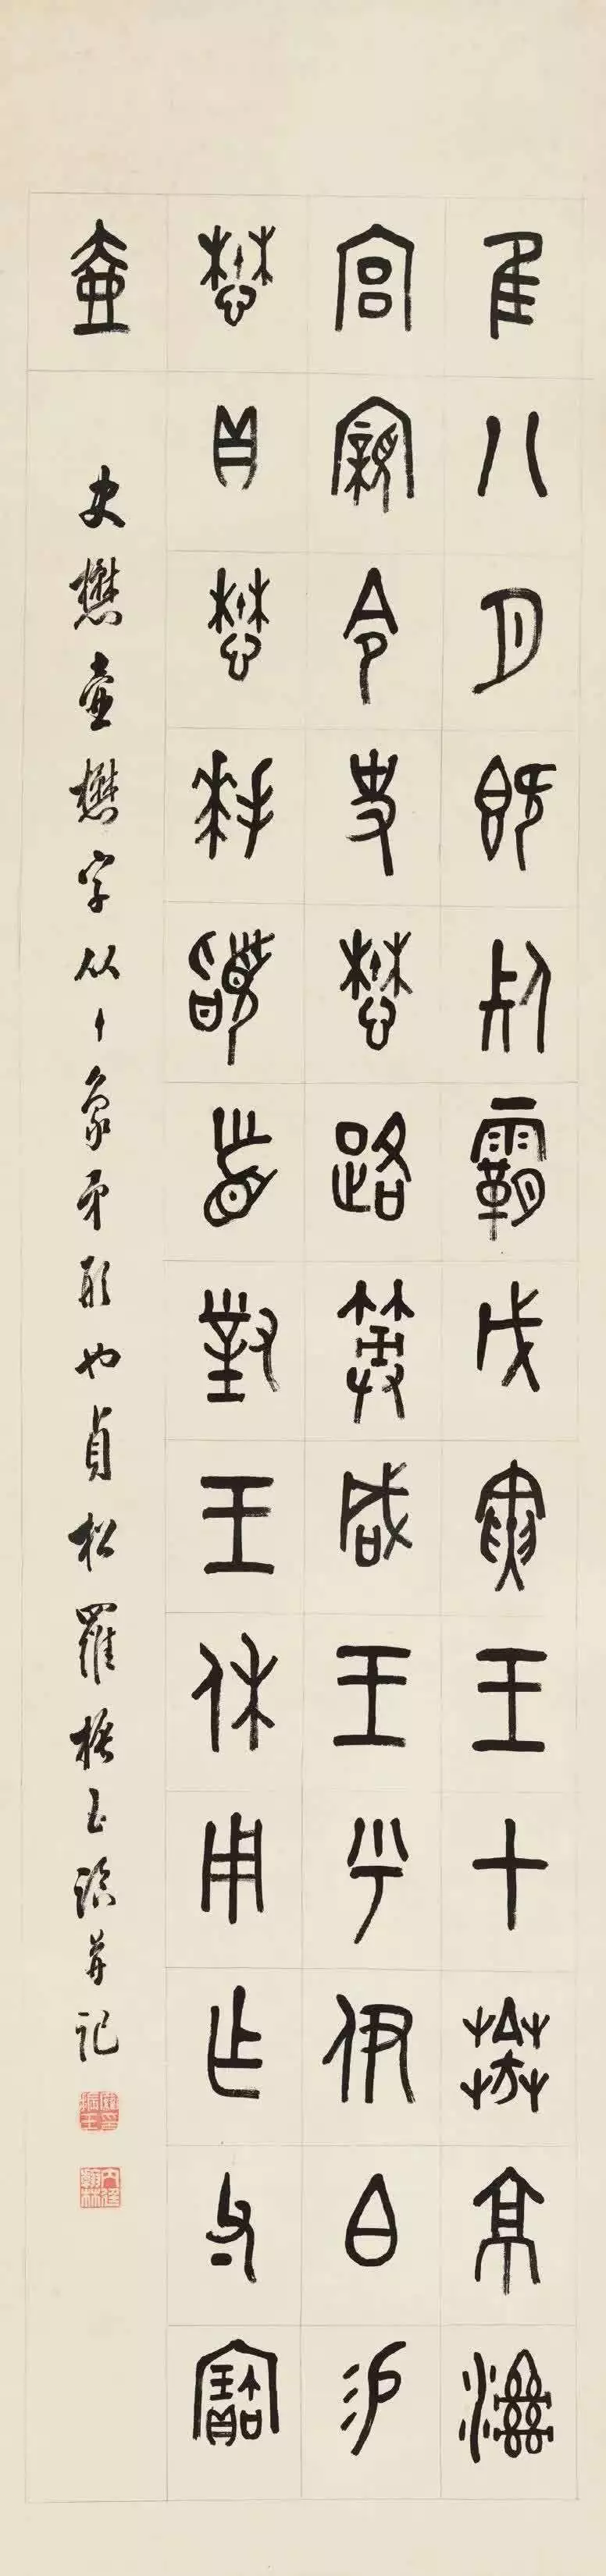 隹八月既死霸戊寅王才𦯉京溼
宮親令史懋路筭咸王乎伊白易
懋貝懋拜𩒨首對王休用乍父丁寶
壺
史懋壺懋字从丨象矛形也貞松羅振玉臨并記